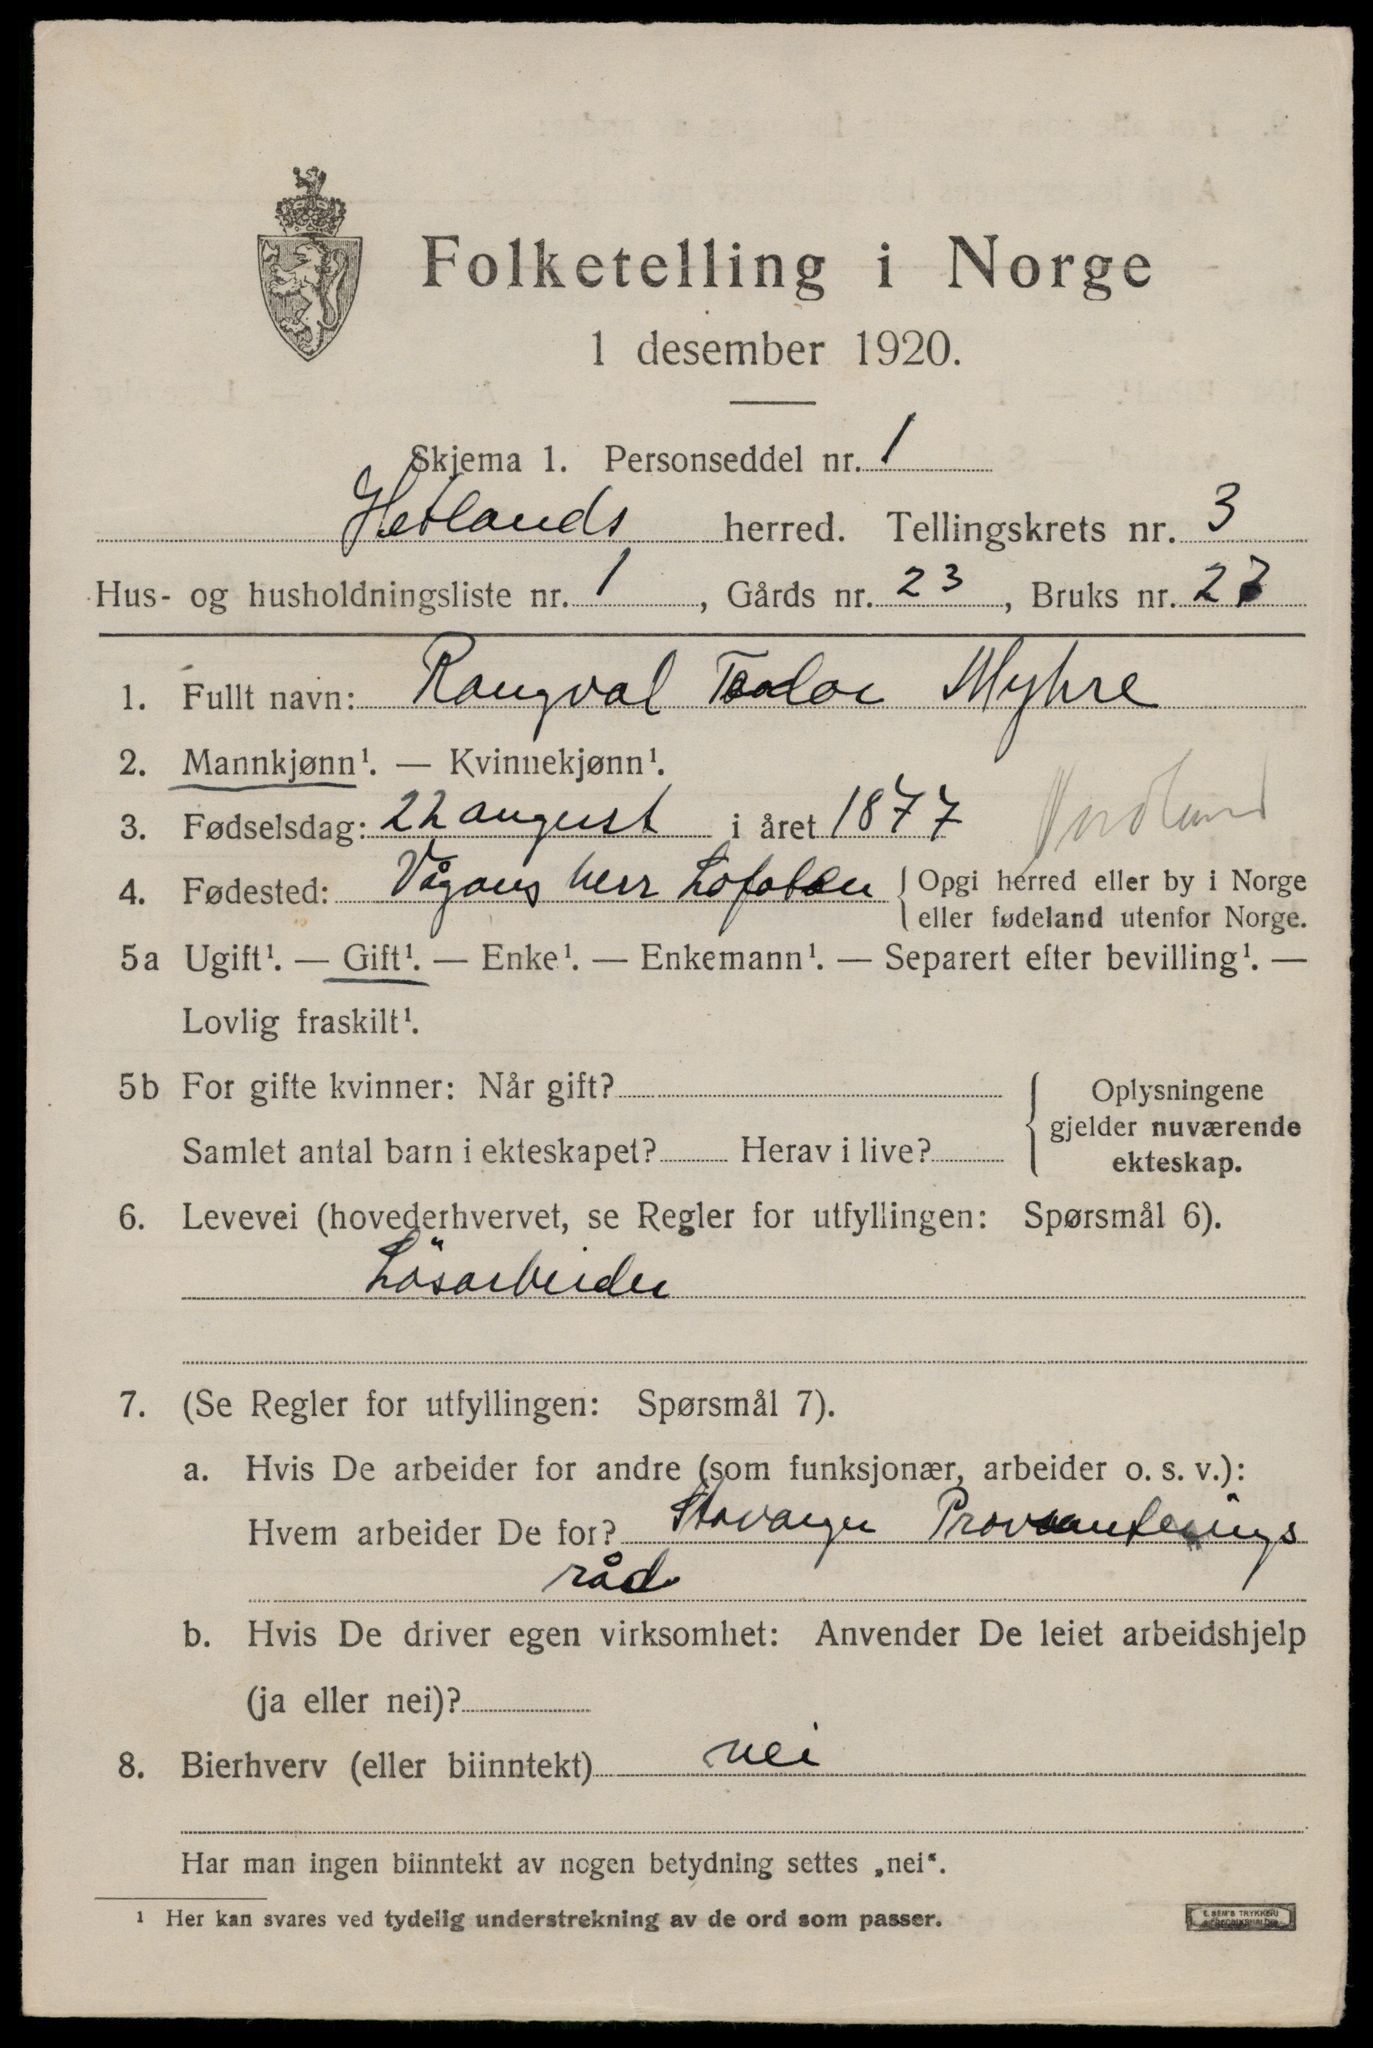 Folketelling i Norge
1 desember 1920.
Skjema 1. Personseddel nr. 1
Hetlands herred. Tellingskrets nr. 3
Hus- og husholdningsliste nr. 1, Gårds nr. 23, Bruks nr. 27
1. Fullt navn: Rangval Teodor Myhre
2. Mannkjønn¹. — Kvinnekjønn¹.
3. Fødselsdag: 22 august i året 1877 Nordland
4. Fødested: Vågans herr Lofoten { Opgi herred eller by i Norge
eller fødeland utenfor Norge.
5a Ugift¹. — Gift¹. — Enke¹. — Enkemann¹. — Separert efter bevilling¹. —
Lovlig fraskilt¹.
5b For gifte kvinner: Når gift? { Oplysningene
gjelder nuværende
Samlet antal barn i ekteskapet? Herav i live?
ekteskap.
6. Levevei (hovederhvervet, se Regler for utfyllingen: Spørsmål 6).
Lösarbeider
7. (Se Regler for utfyllingen: Spørsmål 7).
a. Hvis De arbeider for andre (som funksjonær, arbeider o. s. v.):
Hvem arbeider De for? Stavanger Provianterings
råd
b. Hvis De driver egen virksomhet: Anvender De leiet arbeidshjelp
(ja eller nei)?
8. Bierhverv (eller biinntekt) nei
Har man ingen biinntekt av nogen betydning settes „nei“.
¹ Her kan svares ved tydelig understrekning av de ord som passer.
E. SEM'S TRYKKERI
FREDRIKSHALD